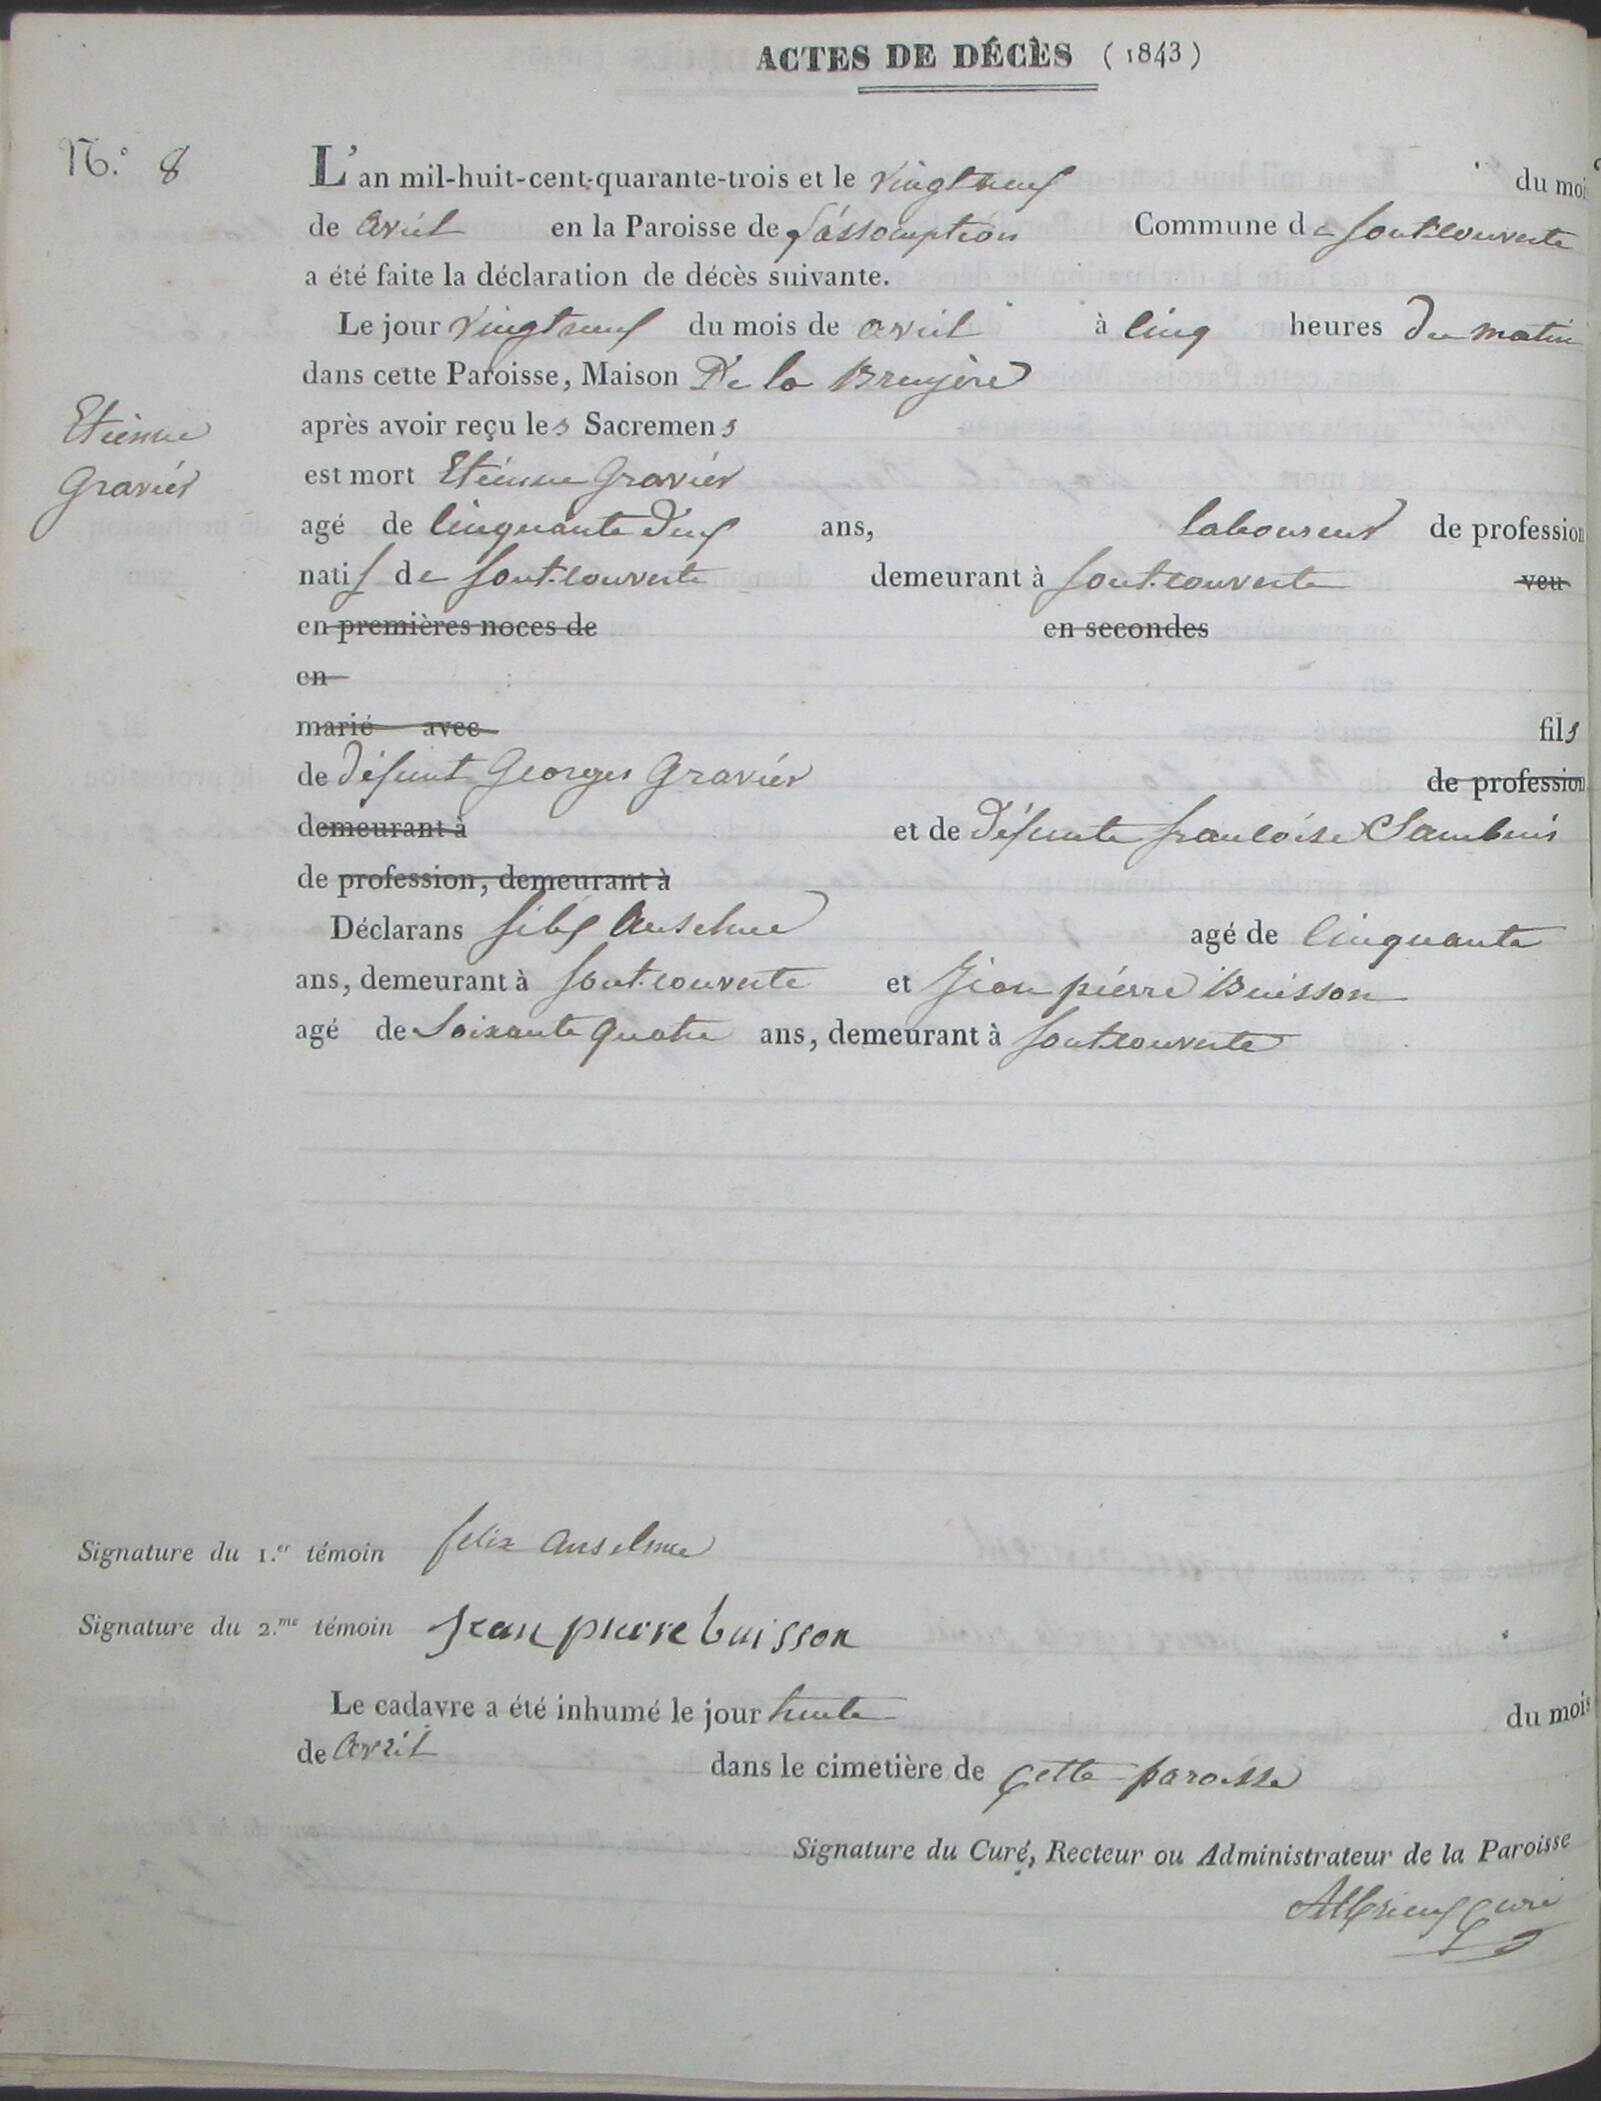 ACTES DE DÉCÈS (1843)
N.° 8
L'an mil-huit-cent-quarante-trois et le vingt neuf du moi
de avril en la Paroisse de l'assomption Commune de fontcouverte
a été faite la déclaration de décès suivante.
Le jour vingt neuf du mois de avril à cinq heures du matin
dans cette Paroisse, Maison De la Bruyère
Etienne
Gravier
après avoir reçu les Sacremens
est mort Etienne Gravier
agé de cinquante deux ans, laboureur de profession
natif de fontcouverte demeurant à fontcouverte veu
en premières noces de en secondes
en
marié avec fils
de défunt Georges Gravier de profession
demeurant à et de défunte francoise Sambuis
de profession, demeurant à
Déclarans félix Anselme agé de cinquante
ans, demeurant à fontcouverte et Jean pierre Buisson
agé de soixante quatre ans, demeurant à fontcouverte
Signature du 1.er témoin felix anselme
Signature du 2.me témoin jean pierre buisson
Le cadavre a été inhumé le jour trente du mois
de avril dans le cimetière de cette paroisse
Signature du Curé, Recteur ou Administrateur de la Paroisse
curé